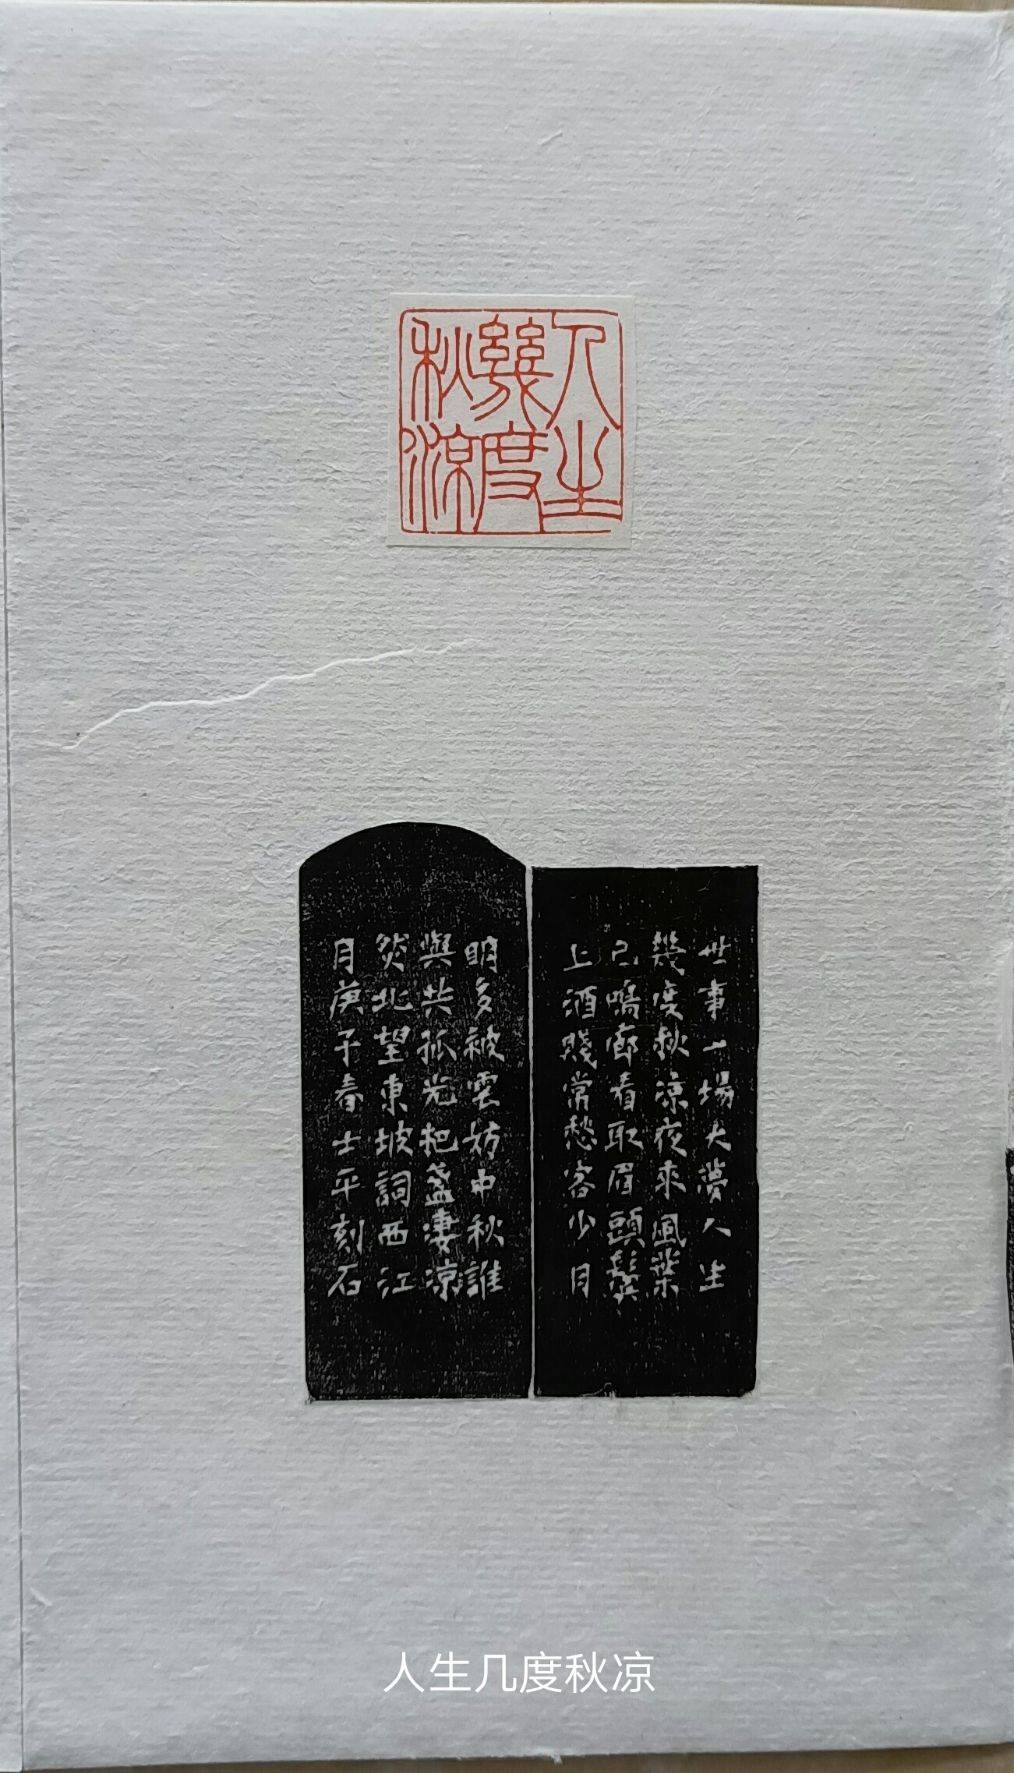 人生
幾度
秋涼
世事一場大夢人生
幾度秋涼夜來風葉
已鳴廊看取眉頭鬢
上酒賤常愁客少月
明多被雲妨中秋誰
與共孤光把盞凄涼
然北望東坡詞西江
月庚子春士平刻石
人生几度秋凉